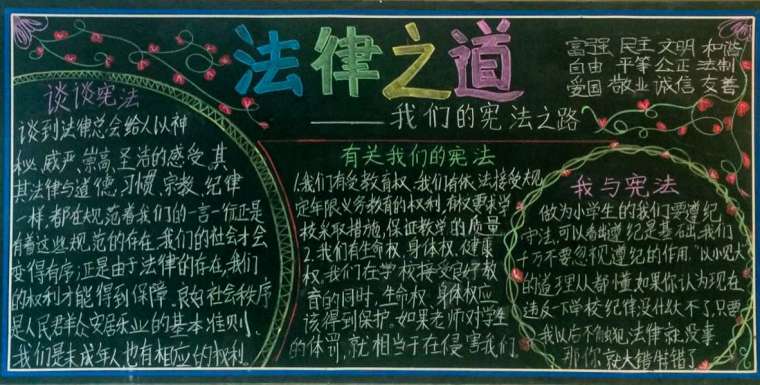 法律之道
——我们的宪法之路
富强 民主 文明 和谐
自由 平等 公正 法制
爱国 敬业 诚信 友善
谈谈宪法
谈到法律总会给人以神
秘、威严、崇高、圣洁的感受。其
其法律与道德、习惯、宗教、纪律
一样，都在规范着我们的一言一行正是
有着这些规范的存在，我们的社会才会
变得有序；正是由于法律的存在，我们
的权利才能得到保障。良好社会秩序
是人民群众安居乐业的基本准则，
我们是未成年人也有相应的权利。
有关我们的宪法
1.我们有受教育权。我们有依法接受规
定年限义务教育的权利，有权要求学
校采取措施，保证教学的质量
2.我们有生命权、身体权、健康
权。我们在学校接受良好教
育的同时，生命权、身体权应
该得到保护。如果老师对学生
的体罚，就相当于在侵害我们
我与宪法
做为小学生的我们要遵纪
守法，可以看出遵纪是基础，我们
千万不要忽视遵纪的作用。“以小见大
的道理人都懂，如果你认为现在
违反一下学校纪律没什么大不了，只要
我以后不触犯法律就没事，
那你就大错特错了